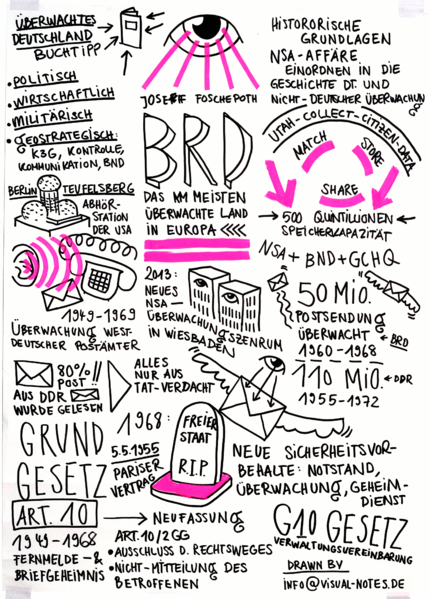 ÜBERWACHTES
DEUTSCHLAND
BUCHTIPP
• POLITISCH
• WIRTSCHAFTLICH
• MILITÄRISCH
• GEOSTRATEGISCH:
K3G, KONTROLLE,
KOMMUNIKATION, BND
JOSEF FOSCHEPOTH
HISTORORISCHE
GRUNDLAGEN
NSA-AFFÄRE
EINORDNEN IN DIE
GESCHICHTE DT. UND
NICHT-DEUTSCHER ÜBERWACHUNG
BRD
DAS AM MEISTEN
ÜBERWACHTE LAND
IN EUROPA <<<
UTAH-COLLECT-CITIZEN-DATA
MATCH
STORE
SHARE
→ 500 QUINTILLIONEN ←
SPEICHERKAPAZITÄT
BERLIN TEUFELSBERG
ABHÖR-
STATION
DER USA
1949-1969
ÜBERWACHUNG WEST-
DEUTSCHER POSTÄMTER
2013:
NEUES
NSA-
ÜBERWACHUNGSZENRUM
IN WIESBADEN
NSA+BND+GCHQ
50 MIO.
POSTSENDUNG
ÜBERWACHT ← BRD
1960-1968
110 MIO. ← DDR
1955-1972
80%!!
POST
AUS DDR
WURDE GELESEN
ALLES
NUR AUS
TAT-VERDACHT
GRUND
GESETZ
ART. 10
1949-1968
FERNMELDE-&
BRIEFGEHEIMNIS
1968:
5.5.1955
PARISER
VERTRAG
FREIER
STAAT
R.I.P.
→ NEUFASSUNG
ART.10/2GG
• AUSSCHLUSS D. RECHTSWEGES
• NICHT-MITTEILUNG DES
BETROFFENEN
NEUE SICHERHEITSVOR-
BEHALTE: NOTSTAND,
ÜBERWACHUNG, GEHEIM-
DIENST
G10 GESETZ
VERWALTUNGSVEREINBARUNG
DRAWN BY
INFO@VISUAL-NOTES.DE